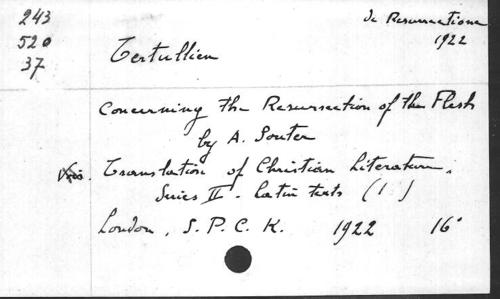 243
520
37
De Resurrectione
1922
Tertullien
Concerning the Resurrection of the Flesh
by A. Souter
Translation of Christian Literature.
Series II. Latin texts ( )
London, S. P. C. K. 1922 16°